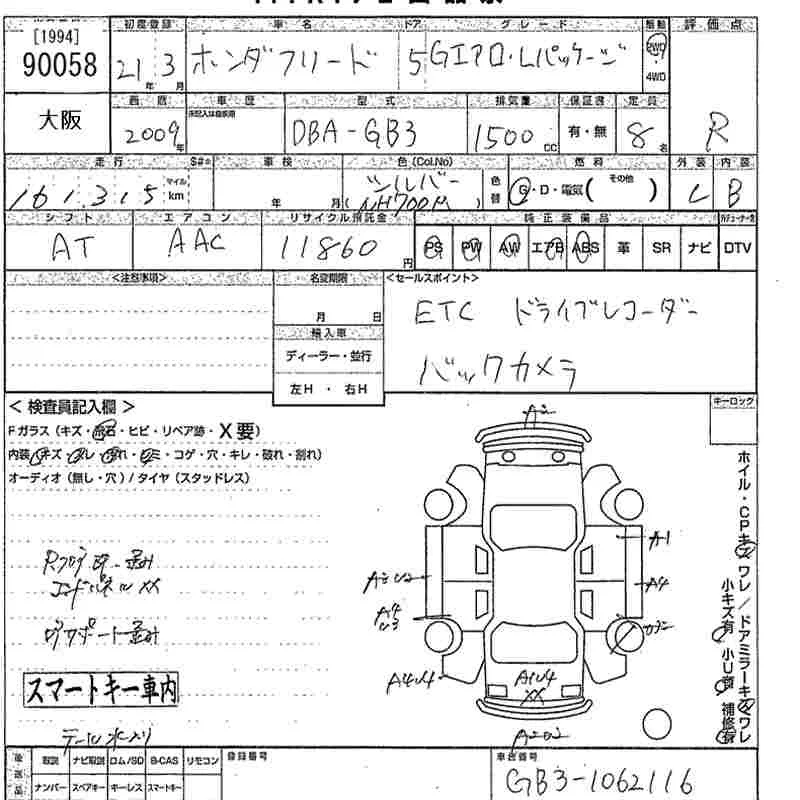 [1994]
90058
大阪
初度登録 車名 ドア グレード 駆動 評価点
21年3月 ホンダフリード 5 Gエアロ・Lパッケージ 2WD・4WD
西暦 車歴 型式 排気量 保証書 定員
2009年 DBA-GB3 1500cc 有・無 8名 R
走行 S#= 車検 色(Col.No) 燃料 外装 内装
161,315 マイル km 年 月 シルバー (NH700M) 色替 G・D・電気( その他 ) C B
シフト エアコン リサイクル預託金 純正装備品
AT AAC 11860円 PS PW AW エアB ABS 革 SR ナビ DTV
<注意事項> 名変期限 <セールスポイント>
月 日 ETC ドライブレコーダー
輸入車
ディーラー・並行 バックカメラ
左H・右H
<検査員記入欄> キーロック
Fガラス(キズ・飛石・ヒビ・リペア跡・X要)
内装(キズ・スレ・汚れ・シミ・コゲ・穴・キレ・破れ・割れ)
オーディオ(無し・穴)/タイヤ(スタッドレス)
エンドパネルXX
スマートキー車内
テール水入り
A2
A1
A4
A2 U2
A4
U3
A4U4
A1U4
XX
A2U2
ホイル・CPキズワレ/ドアミラーキズワレ
小キズ有 小U有 補修有
後送品 取説 ナビ取説 ロム/SD B-CAS リモコン 登録番号 車台番号
ナンバー スペアキー キーレス スマートキー GB3-1062116